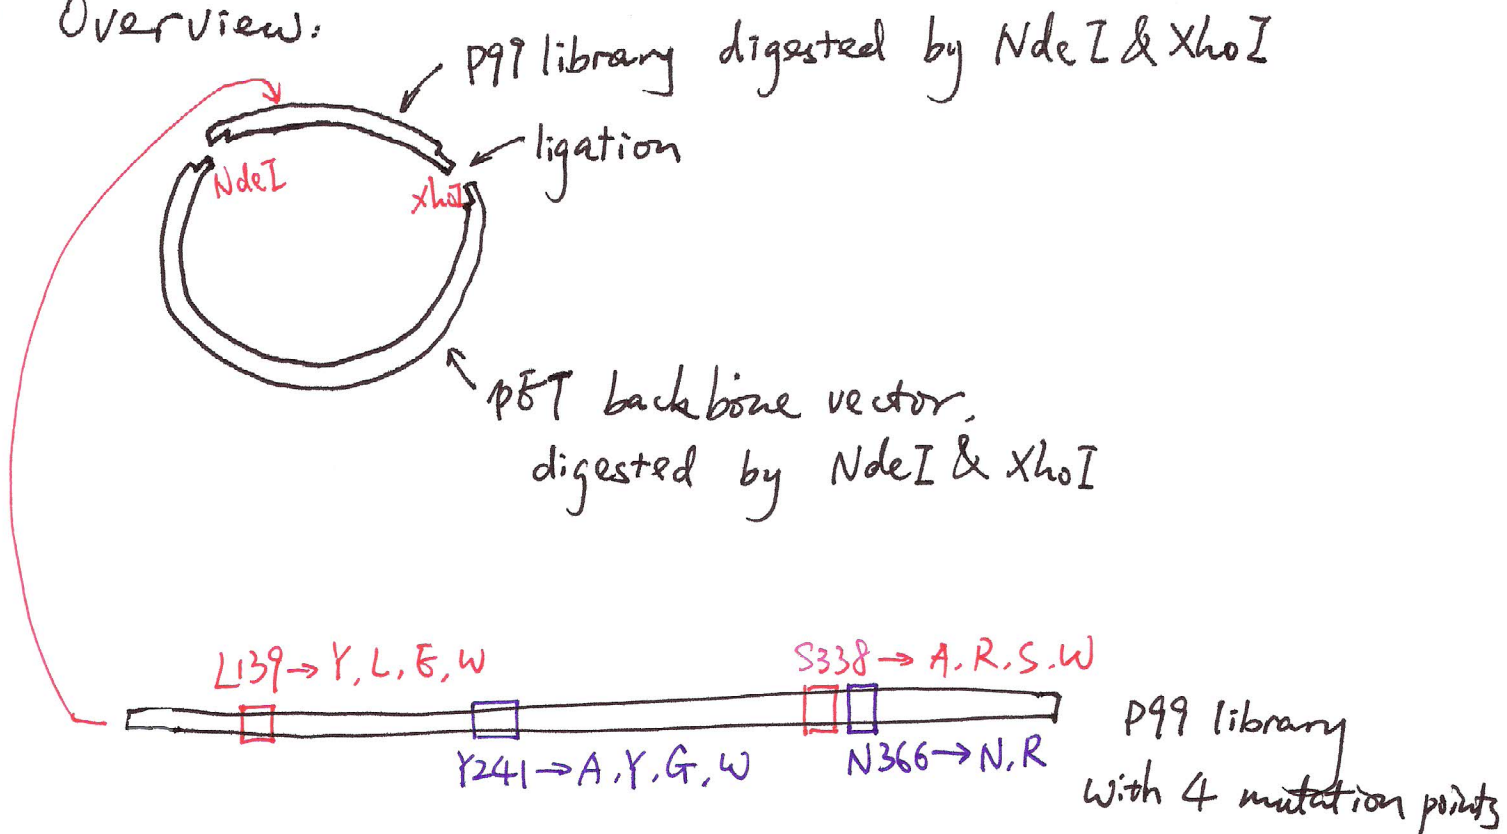 Overview:
P99 library digested by NdeI & XhoI
ligation
NdeI
XhoI
pET backbone vector,
digested by NdeI & XhoI
L139→Y, L, E, W
S338→A, R, S, W
Y241→A, Y, G, W
N366→N, R
P99 library
with 4 mutation points